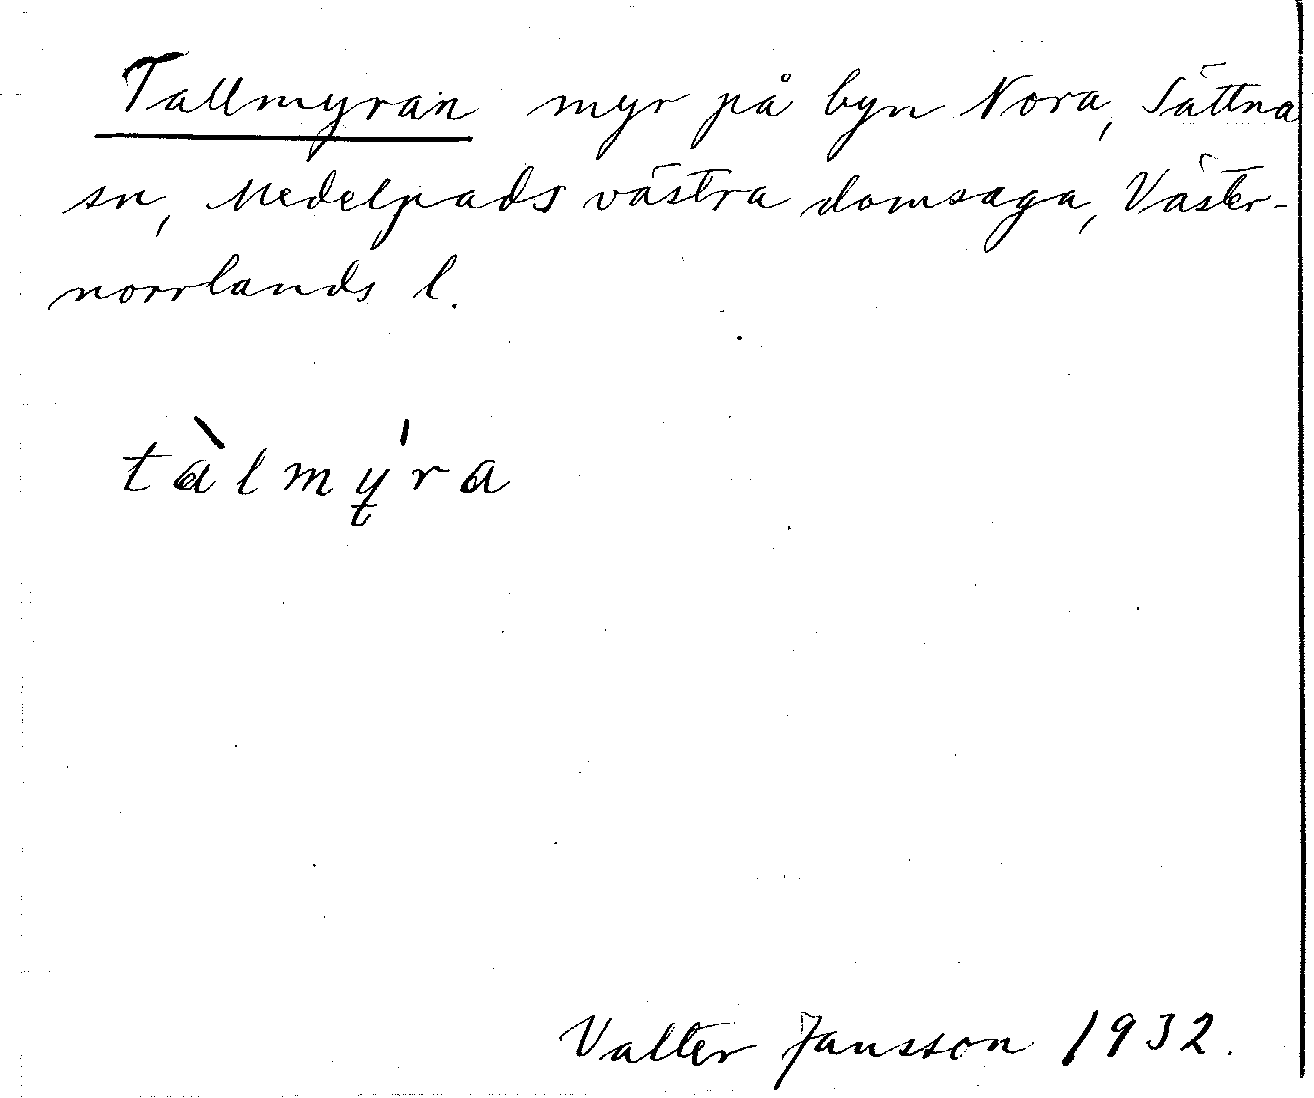 Tallmyran myr på byn Nora, Sättna
sn, Medelpads västra domsaga, Väster-
norrlands l.
tàlmý̵ra
Valter Jansson 1932.